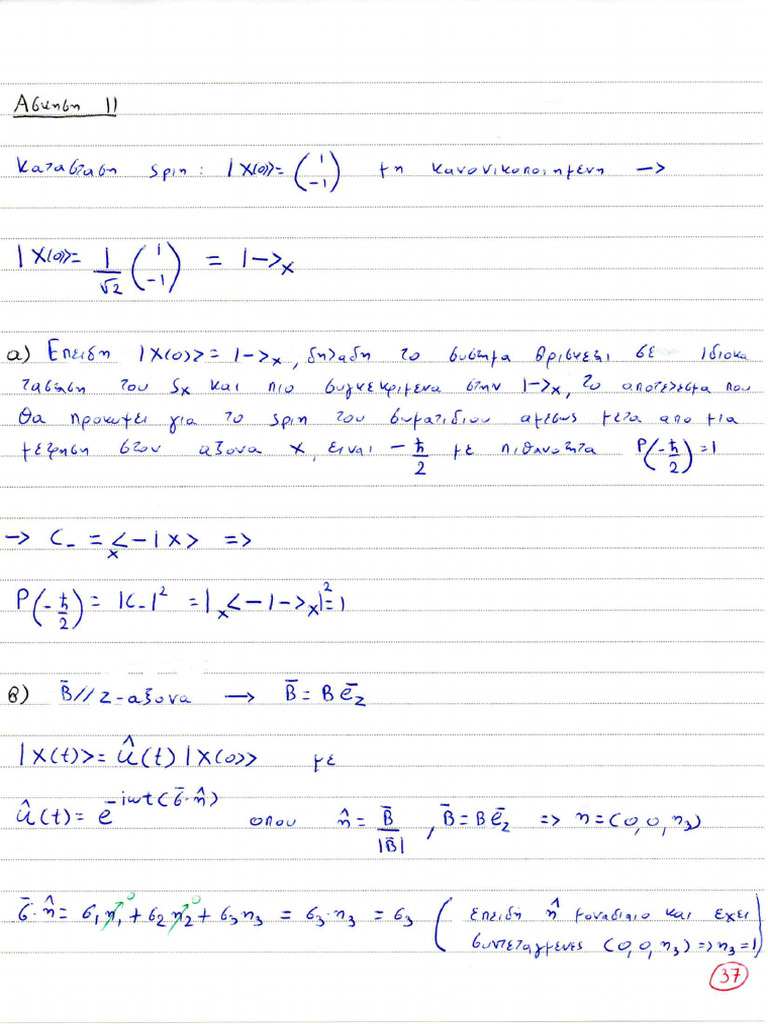 Ασκηση 11
Κατασταση spin: |X(0)> = (1 -1) μη κανονικοποιημενη —>
|X(0)> = 1/√2 (1 -1) = |->x
α) Επειδη |X(0)> = |->x, δηλαδη το συστημα βρισκεται σε ιδιοκα
τασταση του Sx και πιο συγκεκριμενα στην |->x, το αποτελεσμα που
θα προκυψει για το spin του σωματιδιου αμεσως μετα απο μια
μετρηση στον αξονα x, ειναι -ħ/2 με πιθανοτητα P(-ħ/2)=1
→ C- = x<-|X> =>
P(-ħ/2) = |C-|² = |x<-|->x|² = 1
β) B̄ // z-αξονα —> B̄ = B ēz
|X(t)> = û(t) |X(0)> με
û(t) = e^-iωt(σ̄·n̂) οπου n̂ = B̄/|B̄| , B̄ = B ēz => n = (0,0,n3)
σ̄·n̂ = σ1n1 0 + σ2n2 0 + σ3n3 = σ3·n3 = σ3 (επειδη n̂ μοναδιαιο και εχει
συντεταγμενες (0,0,n3) => n3=1)
37